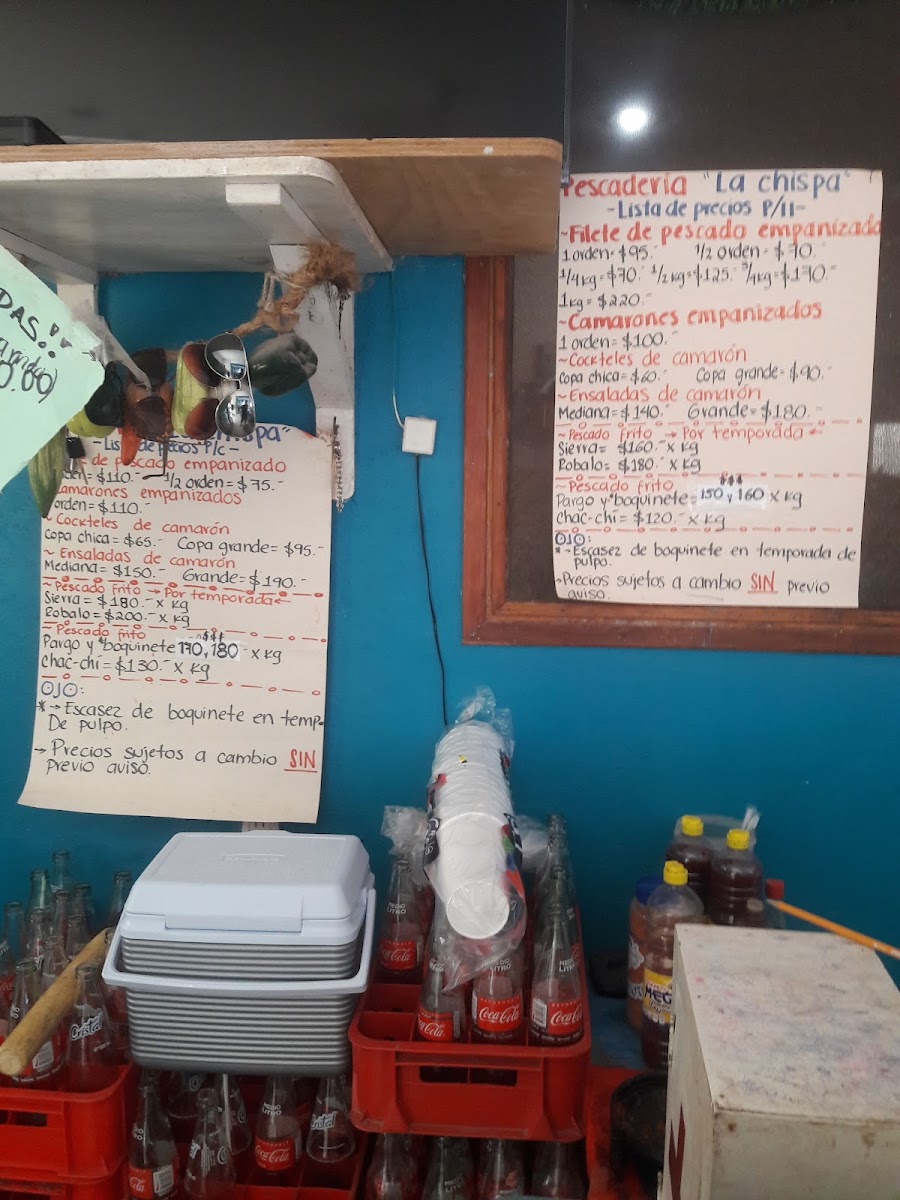 Pescadería "La chispa"
-Lista de precios P/ll-
~Filete de pescado empanizado
1 orden=$95.- 1/2 orden=$70.-
1/4kg=$70.- 1/2kg=$125.- 3/4kg=$170.-
1kg=$220.-
~Camarones empanizados
1 orden=$100.-
~Cockteles de camarón
Copa chica=$60.- Copa grande=$90.-
~Ensaladas de camarón
Mediana=$140.- Grande=$180.-
~Pescado frito → Por temporada ←
Sierra= $160.- x kg
Robalo= $180.- x kg
~Pescado frito
Pargo y *boquinete= $$$ 150 y 160 x kg
Chac-chí= $120.- x kg
OJO:
*→Escasez de boquinete en temporada de
pulpo.
→Precios sujetos a cambio SIN previo
aviso.
DAS!!
0.00)
-Lista de precios P/c-
de pescado empanizado
orden=$110.- 1/2 orden=$75.-
Camarones empanizados
orden=$110.-
~Cockteles de camarón
Copa chica=$65.- Copa grande=$95.-
~Ensaladas de camarón
Mediana=$150.- Grande=$190.-
~Pescado frito → Por temporada←
Sierra= $180.- x kg
Robalo= $200.- x kg
~Pescado frito
Pargo y *boquinete $$$ 170, 180 x kg
Chac-chí=$130.- x kg
OJO:
*→Escasez de boquinete en temp-
De pulpo.
→ Precios sujetos a cambio SIN
Previo aviso.
MEDIO
LITRO
Coca-Cola
MEDIO
LITRO
Coca-Cola
MEDIO
LITRO
Coca-Cola
Coca-Cola
Cristal
MEGA
MEDIO
LITRO
Coca-Cola
Cristal
Coca-Cola